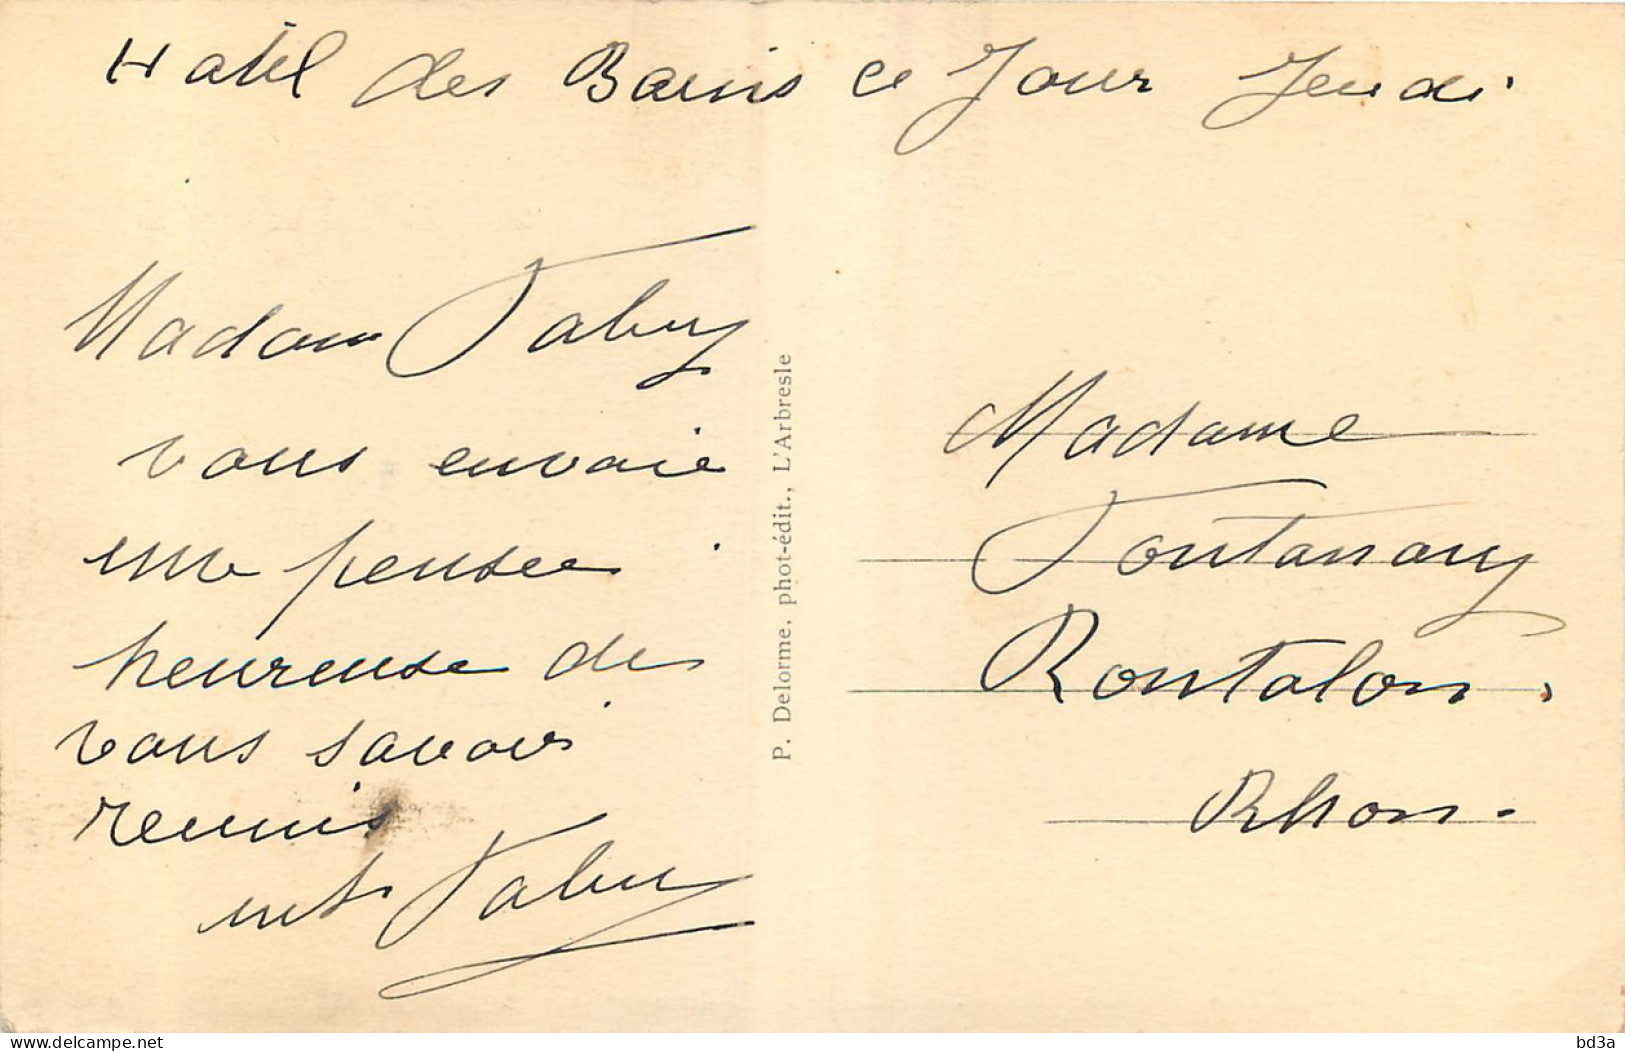 Hotel des Bains ce Jour Jeudi
Madame Fabry
vous envoie
une pensée
heureuse de
vous savoir
reunis
Fabry
P. Delorme, phot-édit., L'Arbresle
Madame
Fontanay
Rontalon.
Rhon.
delcampe.net
bd3a